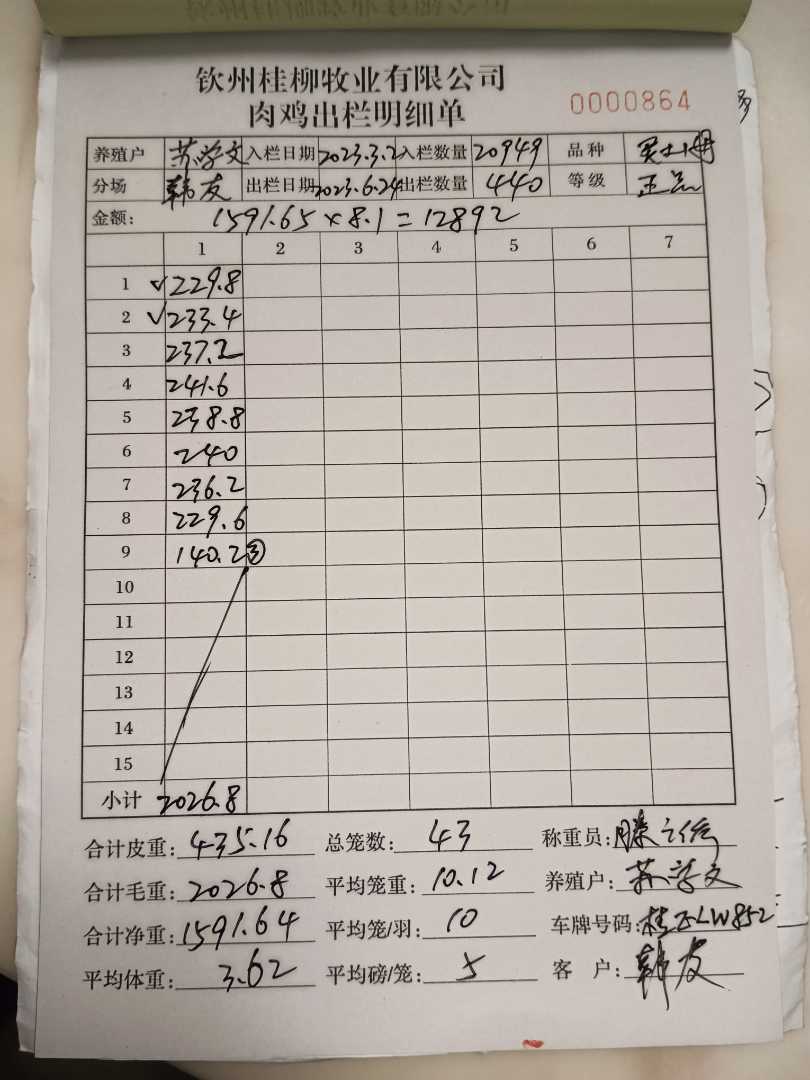 钦州桂柳牧业有限公司
肉鸡出栏明细单 0000864
养殖户 苏学文 入栏日期 2023.3.2 入栏数量 20949 品种
分场 韩友 出栏日期 2023.6.24 出栏数量 440 等级 正品
金额: 1591.65×8.1=12892
1 2 3 4 5 6 7
1 √229.8
2 √233.4
3 237.2
4 241.6
5 238.8
6 240
7 236.2
8 229.6
9 140.2③
10
11
12
13
14
15
小计 2026.8
合计皮重: 435.16 总笼数: 43 称重员:
合计毛重: 2026.8 平均笼重: 10.12 养殖户: 苏学文
合计净重: 1591.64 平均笼/羽: 10 车牌号码: LW852
平均体重: 3.62 平均磅/笼: 5 客 户: 韩友